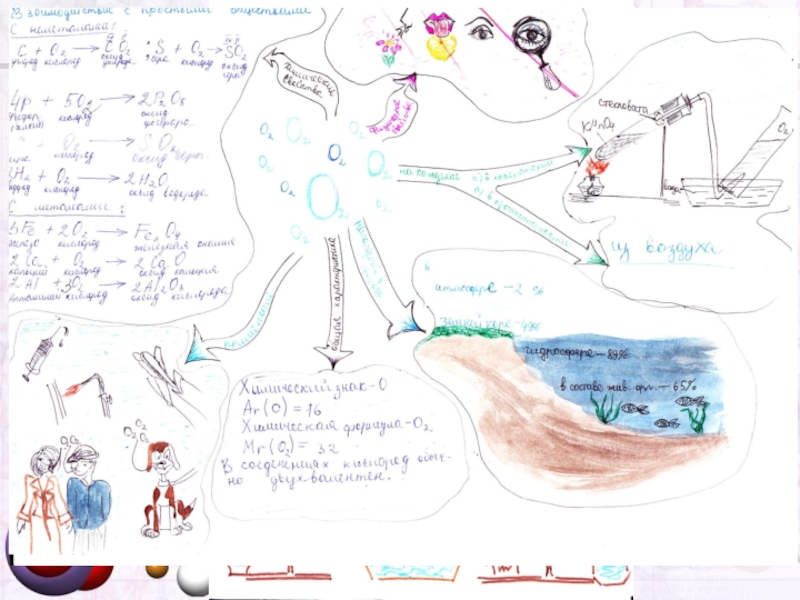 Взаимодействие с простыми веществами
С неметаллами:
C + O₂ → CO₂
углерод кислород оксид углерода
S + O₂ → SO₂
сера кислород оксид серы
4P + 5O₂ → 2P₂O₅
фосфор кислород оксид фосфора
+ O₂ → SO₂
сера кислород оксид серы
2H₂ + O₂ → 2H₂O
водород кислород оксид водорода
С металлами:
3Fe + 2O₂ → Fe₃O₄
железо кислород железная окалина
2Ca + O₂ → 2CaO
кальций кислород оксид кальция
2Al + 3O₂ → 2Al₂O₃
Алюминий кислород оксид кислорода
химические свойства
физические свойства
O₂
O₂
O₂
O₂
O₂
O₂
O₂
O₂
O₂
O₂
получение
а) в лаборатории
б) в промышленности
стекловата
KMnO₄
O₂
вода
из воздуха
применение
общая характеристика
атмосфере – 2 %
земной коре – 49%
гидросфере – 89%
в составе жив. орг. – 65%
Химический знак – O
Ar(O) = 16
Химическая формула – O₂
Mr(O₂) = 32
В соединениях кислород обыч-
но двух-валентен.
O₂
O₂
O₂
O₂
O₂